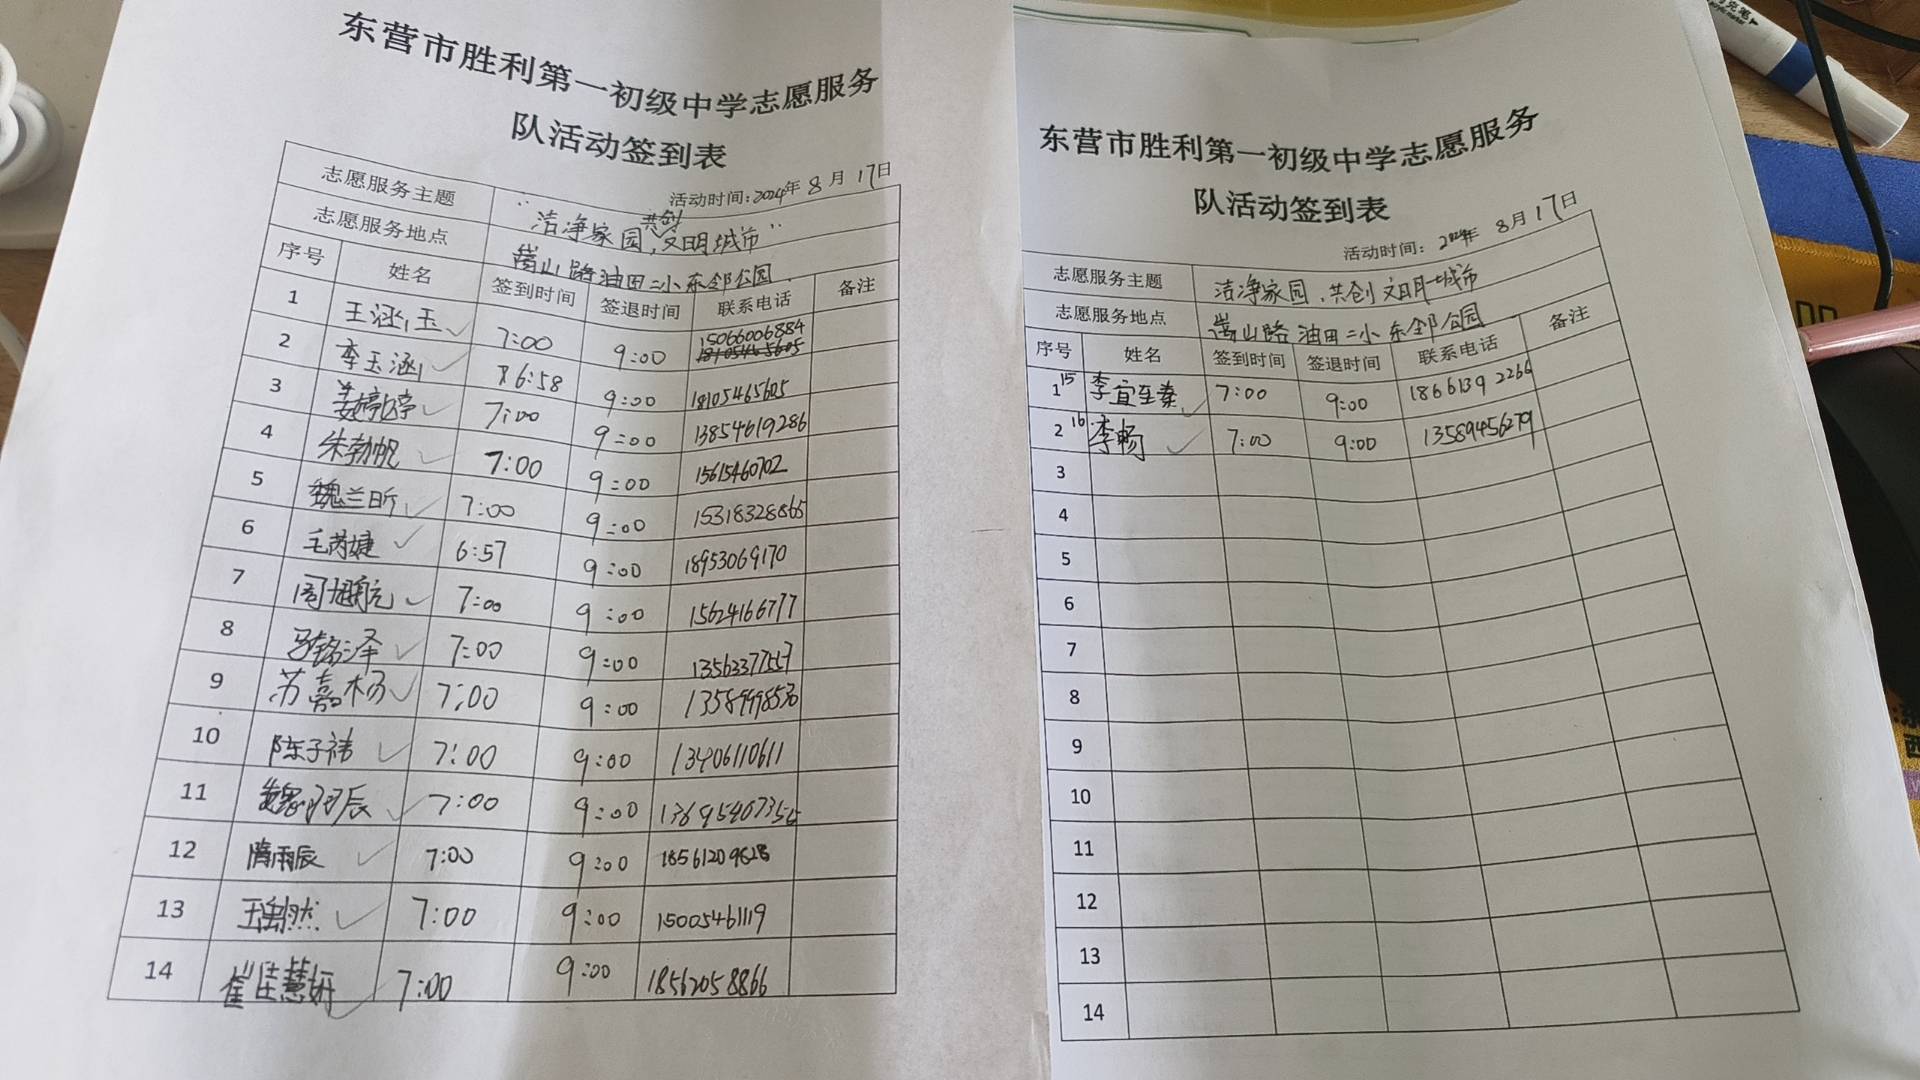 东营市胜利第一初级中学志愿服务
队活动签到表
活动时间:2024年 8 月 17日
志愿服务主题 "洁净家园,共创文明城市"
志愿服务地点 嵩山路油田二小东邻公园
序号 姓名 签到时间 签退时间 联系电话 备注
1 王涵玉 7:00 9:00 15066006884
2 李玉涵 6:58 9:00 18105465605
3 姜婷婷 7:00 9:00 13854619286
4 朱勃帆 7:00 9:00 15615460702
5 魏兰昕 7:00 9:00 15318328865
6 毛芮婕 6:57 9:00 18953069170
7 周旭航 7:00 9:00 15624166777
8 马铭泽 7:00 9:00 13563377557
9 苏嘉杨 7:00 9:00
10 陈子祎 7:00 9:00 13406110611
11 7:00 9:00
12 隋雨辰 7:00 9:00 18561209628
13 7:00 9:00 15005461119
14 崔佳慧妍 7:00 9:00 18562058866
东营市胜利第一初级中学志愿服务
队活动签到表
活动时间: 2024年 8月17日
志愿服务主题 洁净家园,共创文明城市
志愿服务地点 嵩山路油田二小东邻公园
序号 姓名 签到时间 签退时间 联系电话 备注
1 15 李宜蓁 7:00 9:00 18661392266
2 16 李畅 7:00 9:00 13589456279
3
4
5
6
7
8
9
10
11
12
13
14